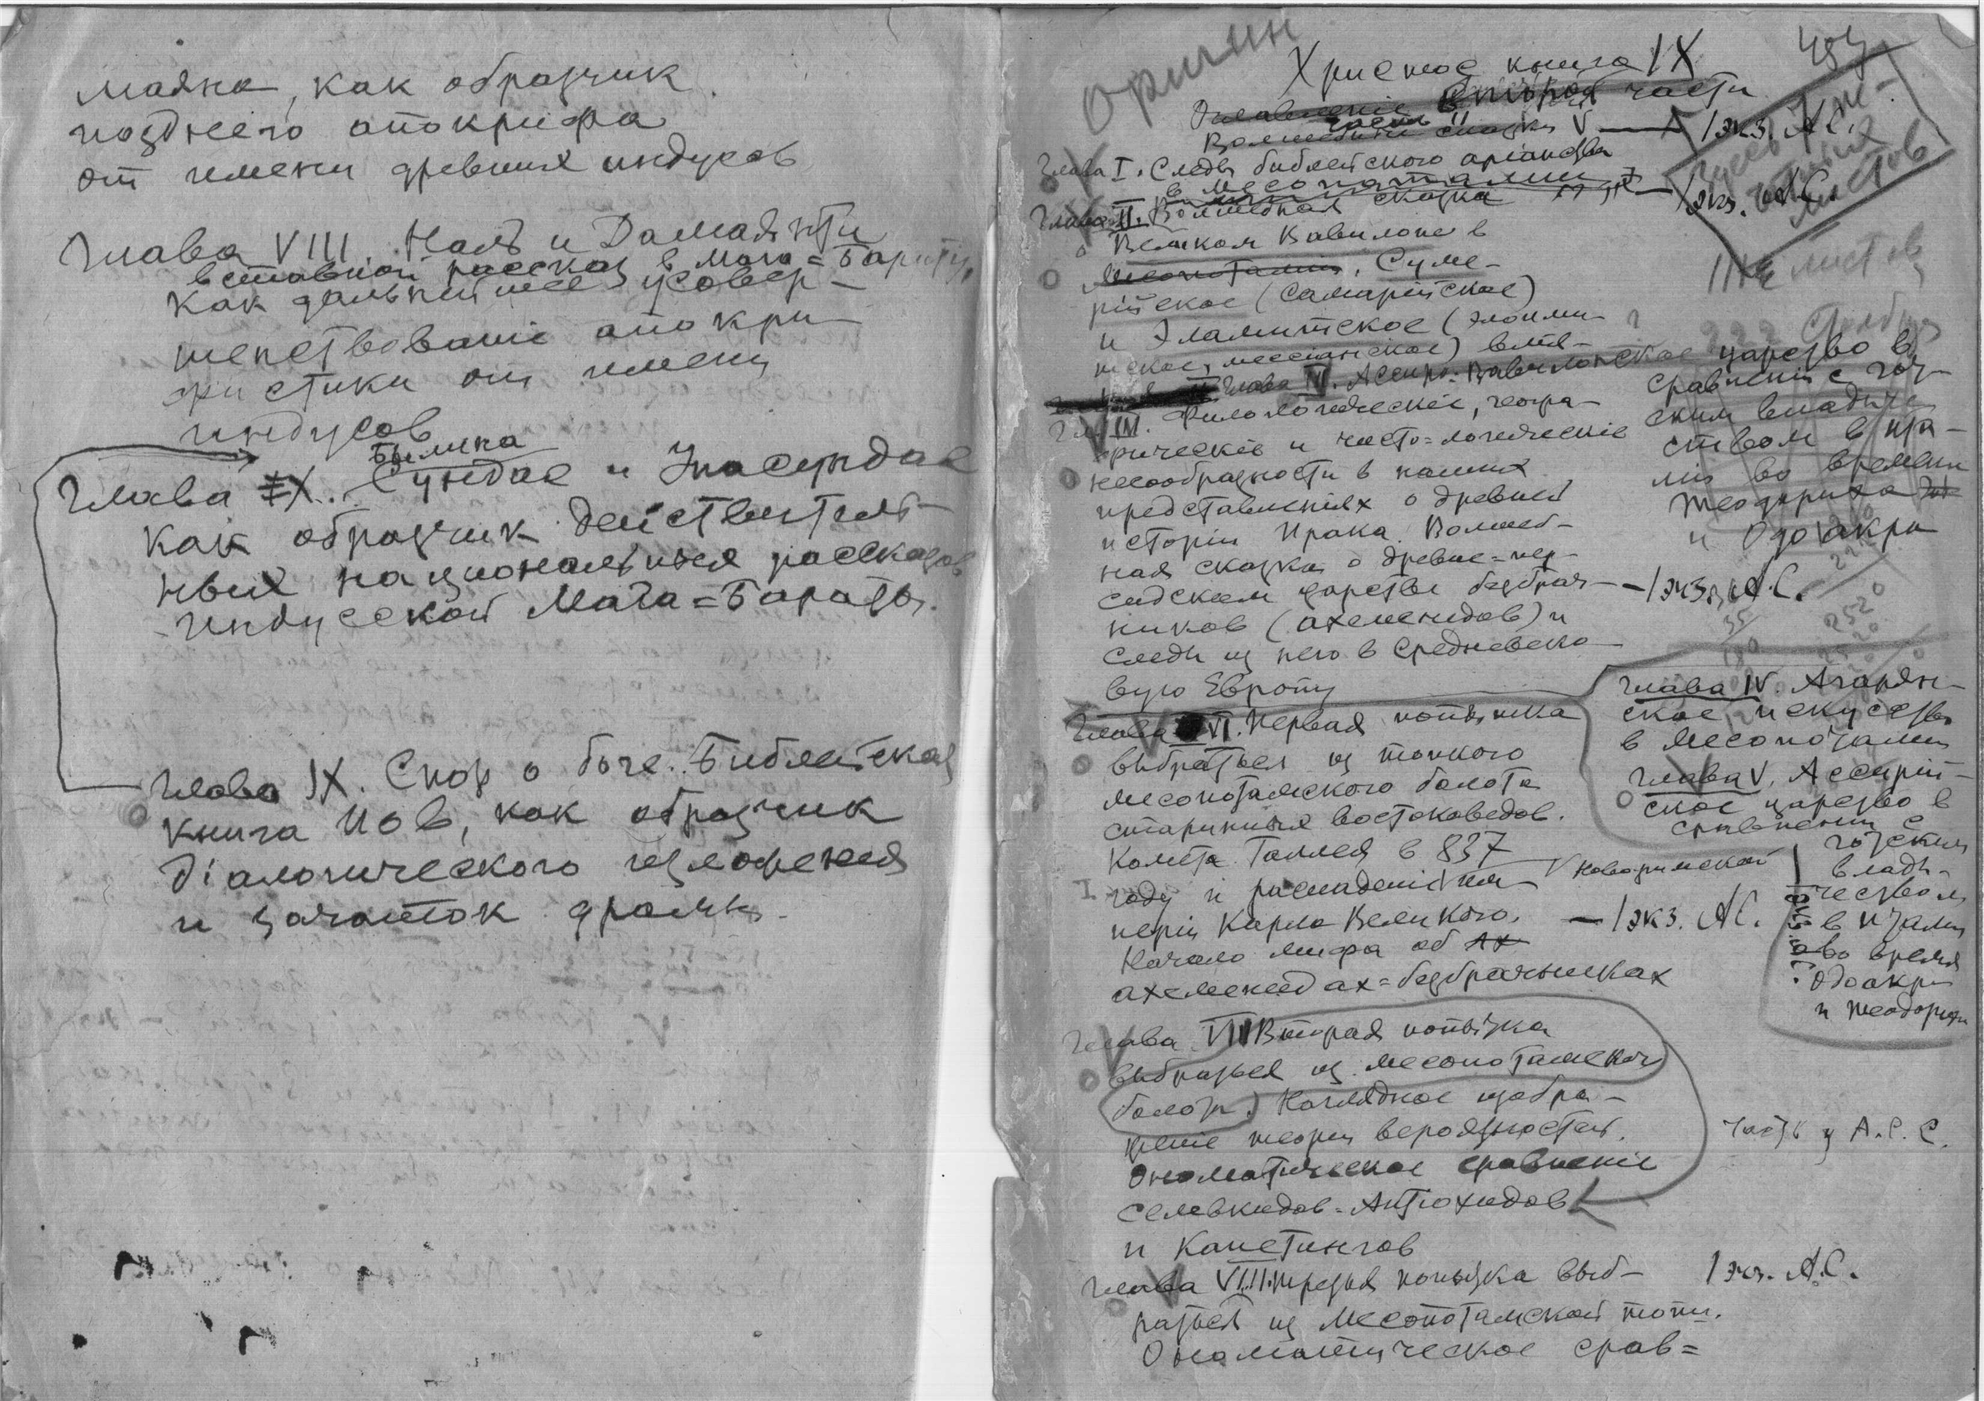 маяна, как образчик
позднего апокрифа
от имени древних индусов
Глава VIII. Наль и Дамаянти
вставной рассказ в Мага=Барату,
как дальнейшее усовер-
шенствованіе апокри-
фистики от имени
индусов
Былина
Глава IX. Сундас и Упасундас
как образчик действитель-
ных национальных рассказов
индусской Мага=Бараты.
Глава IX. Спор о боге. Библейская
книга Иов, как образчик
діалогического изложения
и зачаток драмы.
Оригин
Христос книга IX
Оглавленіе второй части
часть II
Волшебные сказки V — 1 экз. А.С.
Глава I. Следы библейского аріанства
в Месопотамии
Глава II. Волшебная сказка — 1 экз. А.С.
листов
листов
Великом Вавилоне в
Месопотаміи. Суме-
рійское (самарійское)
и Эламитское (элоими-
ское, мессіанское)
Глава IV. Ассиро-Вавилонское царство в
сравненіи с гот-
ским владыче
ством в Ита-
ліи во времена
Теодориха
и Одоакра
Гл. III. Филологическіе, геогра-
фическіе и чисто=логическіе
несообразности в наших
представленіях о древней
исторіи Ирана. Волшеб-
ная сказка о древне=пер-
сидском царстве безбрач- — 1 экз. А.С.
ников (ахеменидов) и
следы из него в Средневеко-
вую Европу
Глава IV. Агарян-
ское искусство
в Месопотаміи
Глава V. Ассирій-
ское царство в
сравнении с
готским
влады-
чеством
в Италии
во время
Одоакра
и Теодориха
Глава VI. Первая попытка
выбраться из топкого
месопотамского болота
старинных востоковедов.
Комета Галлея в 837
году и распаденіе им- Новоримской
періи Карла Великого. — 1 экз. А.С.
Начало мифа об
ахеменидах=безбрачниках
Глава VII Вторая попытка
выбраться из месопотамского
болота. Наглядное изобра-
женіе теории вероятностей.
Ономатическое сравненіе
Селевкидов=Антіохидов
и Капетингов
Часть у А.С.С.
Глава VIII. Третья попытка выб- 1 экз. А.С.
раться из Месопотамской топи.
Ономатическое срав=